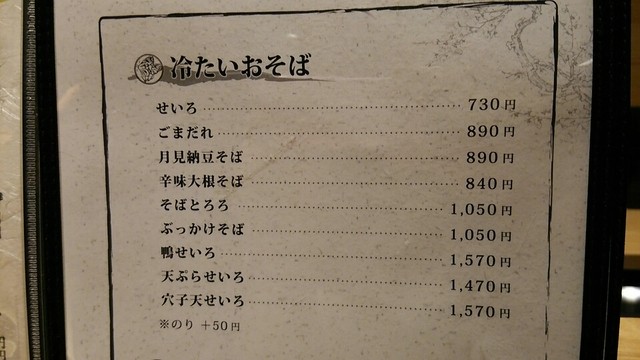 冷たいおそば
せいろ 730円
ごまだれ 890円
月見納豆そば 890円
辛味大根そば 840円
そばとろろ 1,050円
ぶっかけそば 1,050円
鴨せいろ 1,570円
天ぷらせいろ 1,470円
穴子天せいろ 1,570円
※のり +50円